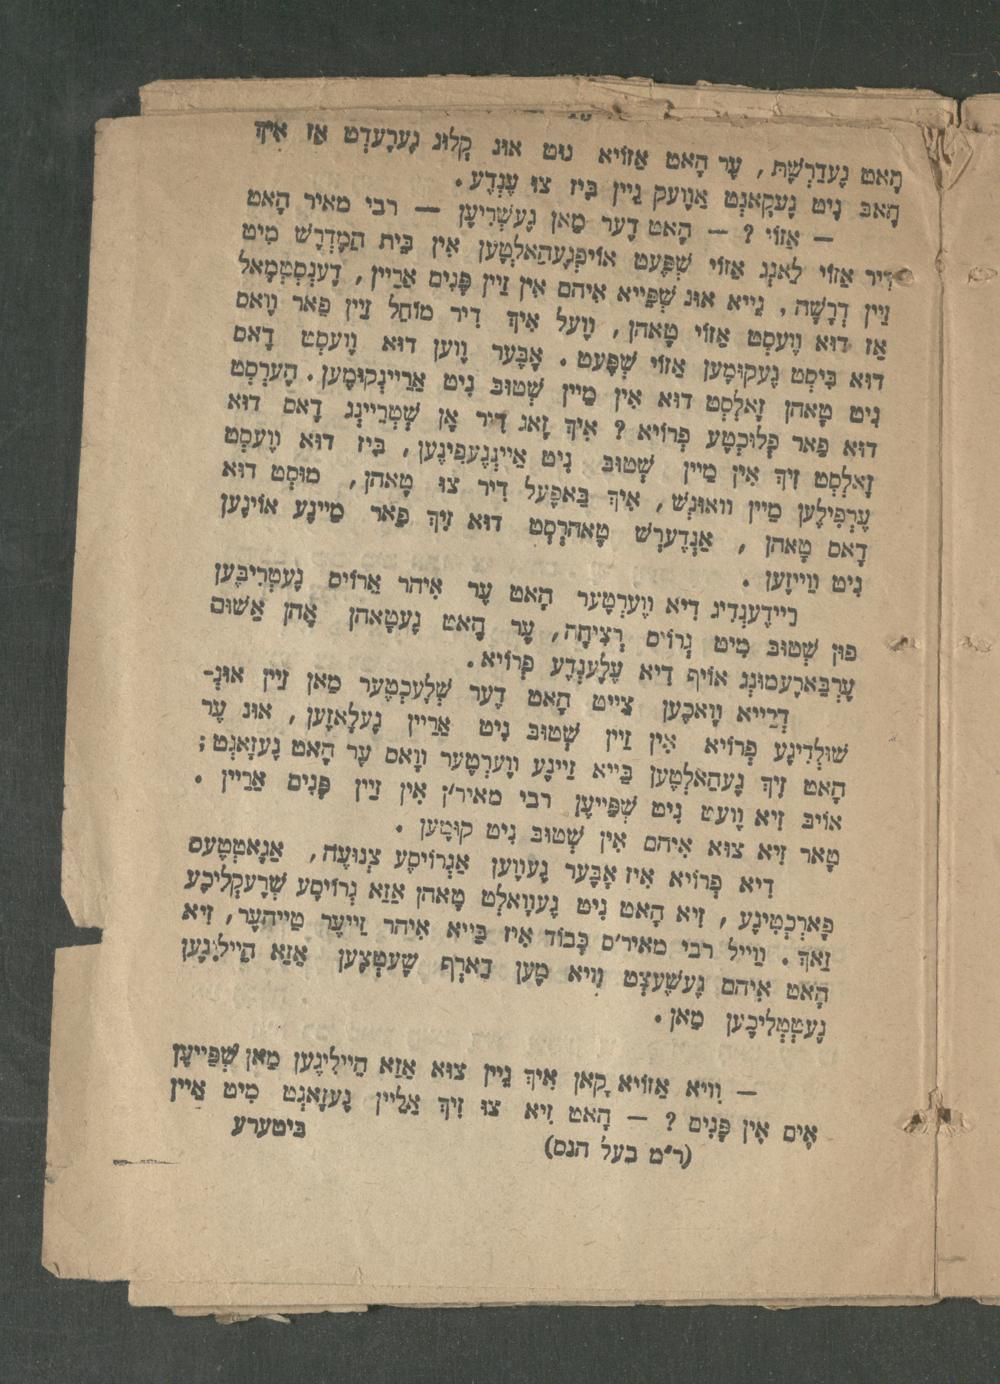 הָאט גֶעדַרְשֶׁת, עֶר הָאט אַזוֹיא גוּט אוּנ קְלוּג גֶערֶעדְט אַז אִיךְ
הָאבּ נִיט גֶעקָאנְט אַוֶועק גֵיין בִּיז צוּ עֶנְדֶע.
— אַזוֹי ? — הָאט דֶער מַאן גֶעשְׁרִיעֶן — רבי מאיר הָאט
דִיר אַזוֹי לַאנְג אַזוֹי שְׁפֶּעט אוֹיפְגֶעהַאלְטֶען אִין בֵּית הַמֶדְרָשׁ מִיט
זַיין דְרָשָׁה, גֵייא אוּנ שְׁפַּייא אִיהם אִין זַיין פָּנִים אַרַיין, דֶענְסְטְמָאל
אַז דוּא וֶועסְט אַזוֹי טָאהן, וֶועל אִיךְ דִיר מוֹחֵל זַיין פַאר וָואס
דוּא בִּיסְט גֶעקוּמֶען אַזוֹי שְׁפֶּעט. אָבֶּער וֶוען דוּא וֶועסְט דָאס
נִיט טָאהן זָאלְסְט דוּא אִין מַיין שְׁטוּבּ נִיט אַרַיינְקוּמֶען. הֶערְסְט
דוּא פַאר פְלוּכְטֶע פְרוֹיא ? אִיךְ זָאג דִיר אָן שְׁטְרֵיינְג דָאס דוּא
זָאלְסְט זִיךְ אִין מַיין שְׁטוּבּ נִיט אַיינְגֶעפִינֶען, בִּיז דוּא וֶועסְט
עֶרְפִילֶען מַיין וואוּנְשׁ, אִיךְ בַּאפֶעל דִיר צוּ טָאהן, מוּסְט דוּא
דָאס טָאהן , אַנְדֶערְשׁ טָאהרְסְט דוּא זִיךְ פַאר מַיינֶע אוֹיגֶען
נִיט וַוייזֶען .
רֵיידֶענְדִיג דִיא וֶוערְטֶער הָאט עֶר אִיהר אַרוֹיס גֶעטְרִיבֶּען
פוּן שְׁטוּבּ מִיט גְרוֹיס רְצִיחָה, עֶר הָאט גֶעטָאהן אָהן אַשׁוּם
עֶרְבַּארֶעמוּנְג אוֹיף דִיא עֶלֶענְדֶע פְרוֹיא.
דְרַייא וָואכֶען צַייט הָאט דֶער שְׁלֶעכְטֶער מַאן זַיין אוּנ־
שׁוּלְדִיגֶע פְרוֹיא אִין זַיין שְׁטוּבּ נִיט אַרַיין גֶעלָאזֶען, אוּנ עֶר
הָאט זִיךְ גֶעהַאלְטֶען בַּייא זַיינֶע ווֶערְטֶער ווָאס עֶר הָאט גֶעזָאגְט;
אוֹיבּ זִיא וֶועט נִיט שְׁפַּייעֶן רבי מאיר׳ן אִין זַיין פָּנִים אַרַיין .
טָאר זִיא צוּא אִיהם אִין שְׁטוּבּ נִיט קוּמֶען .
דִיא פְרוֹיא אִיז אָבֶּער גֶעוֶוען אַגְרוֹיסֶע צְנוּעָה, אַגָאטְטֶעס
פָארְכְטִיגֶע, זִיא הָאט נִיט גֶעוָואלְט טָאהן אַזַא גְרוֹיסֶע שְׁרֶעקְלִיכֶע
זַאךְ. ווַייל רבי מאיר׳ם כָּבוֹד אִיז בַּייא אִיהר זֵייעֶר טַייהעֶר, זִיא
הָאט אִיהם גֶעשֶׁעצְט ווִיא מֶען דַארְף שֶׁעטְצֶען אַזַא הַיילִיגֶען
גֶעטְטְלִיכֶען מַאן.
— ווִיא אַזוֹיא קָאן אִיךְ גֵיין צוּא אַזַא הֵיילִיגֶען מַאן שְׁפַּייעֶן
אִים אִין פָּנִים ? — הָאט זִיא צוּ זִיךְ אַלֵיין גֶעזָאגְט מִיט אַיין
בִּיטערֶע
(ר״מ בעל הנס)